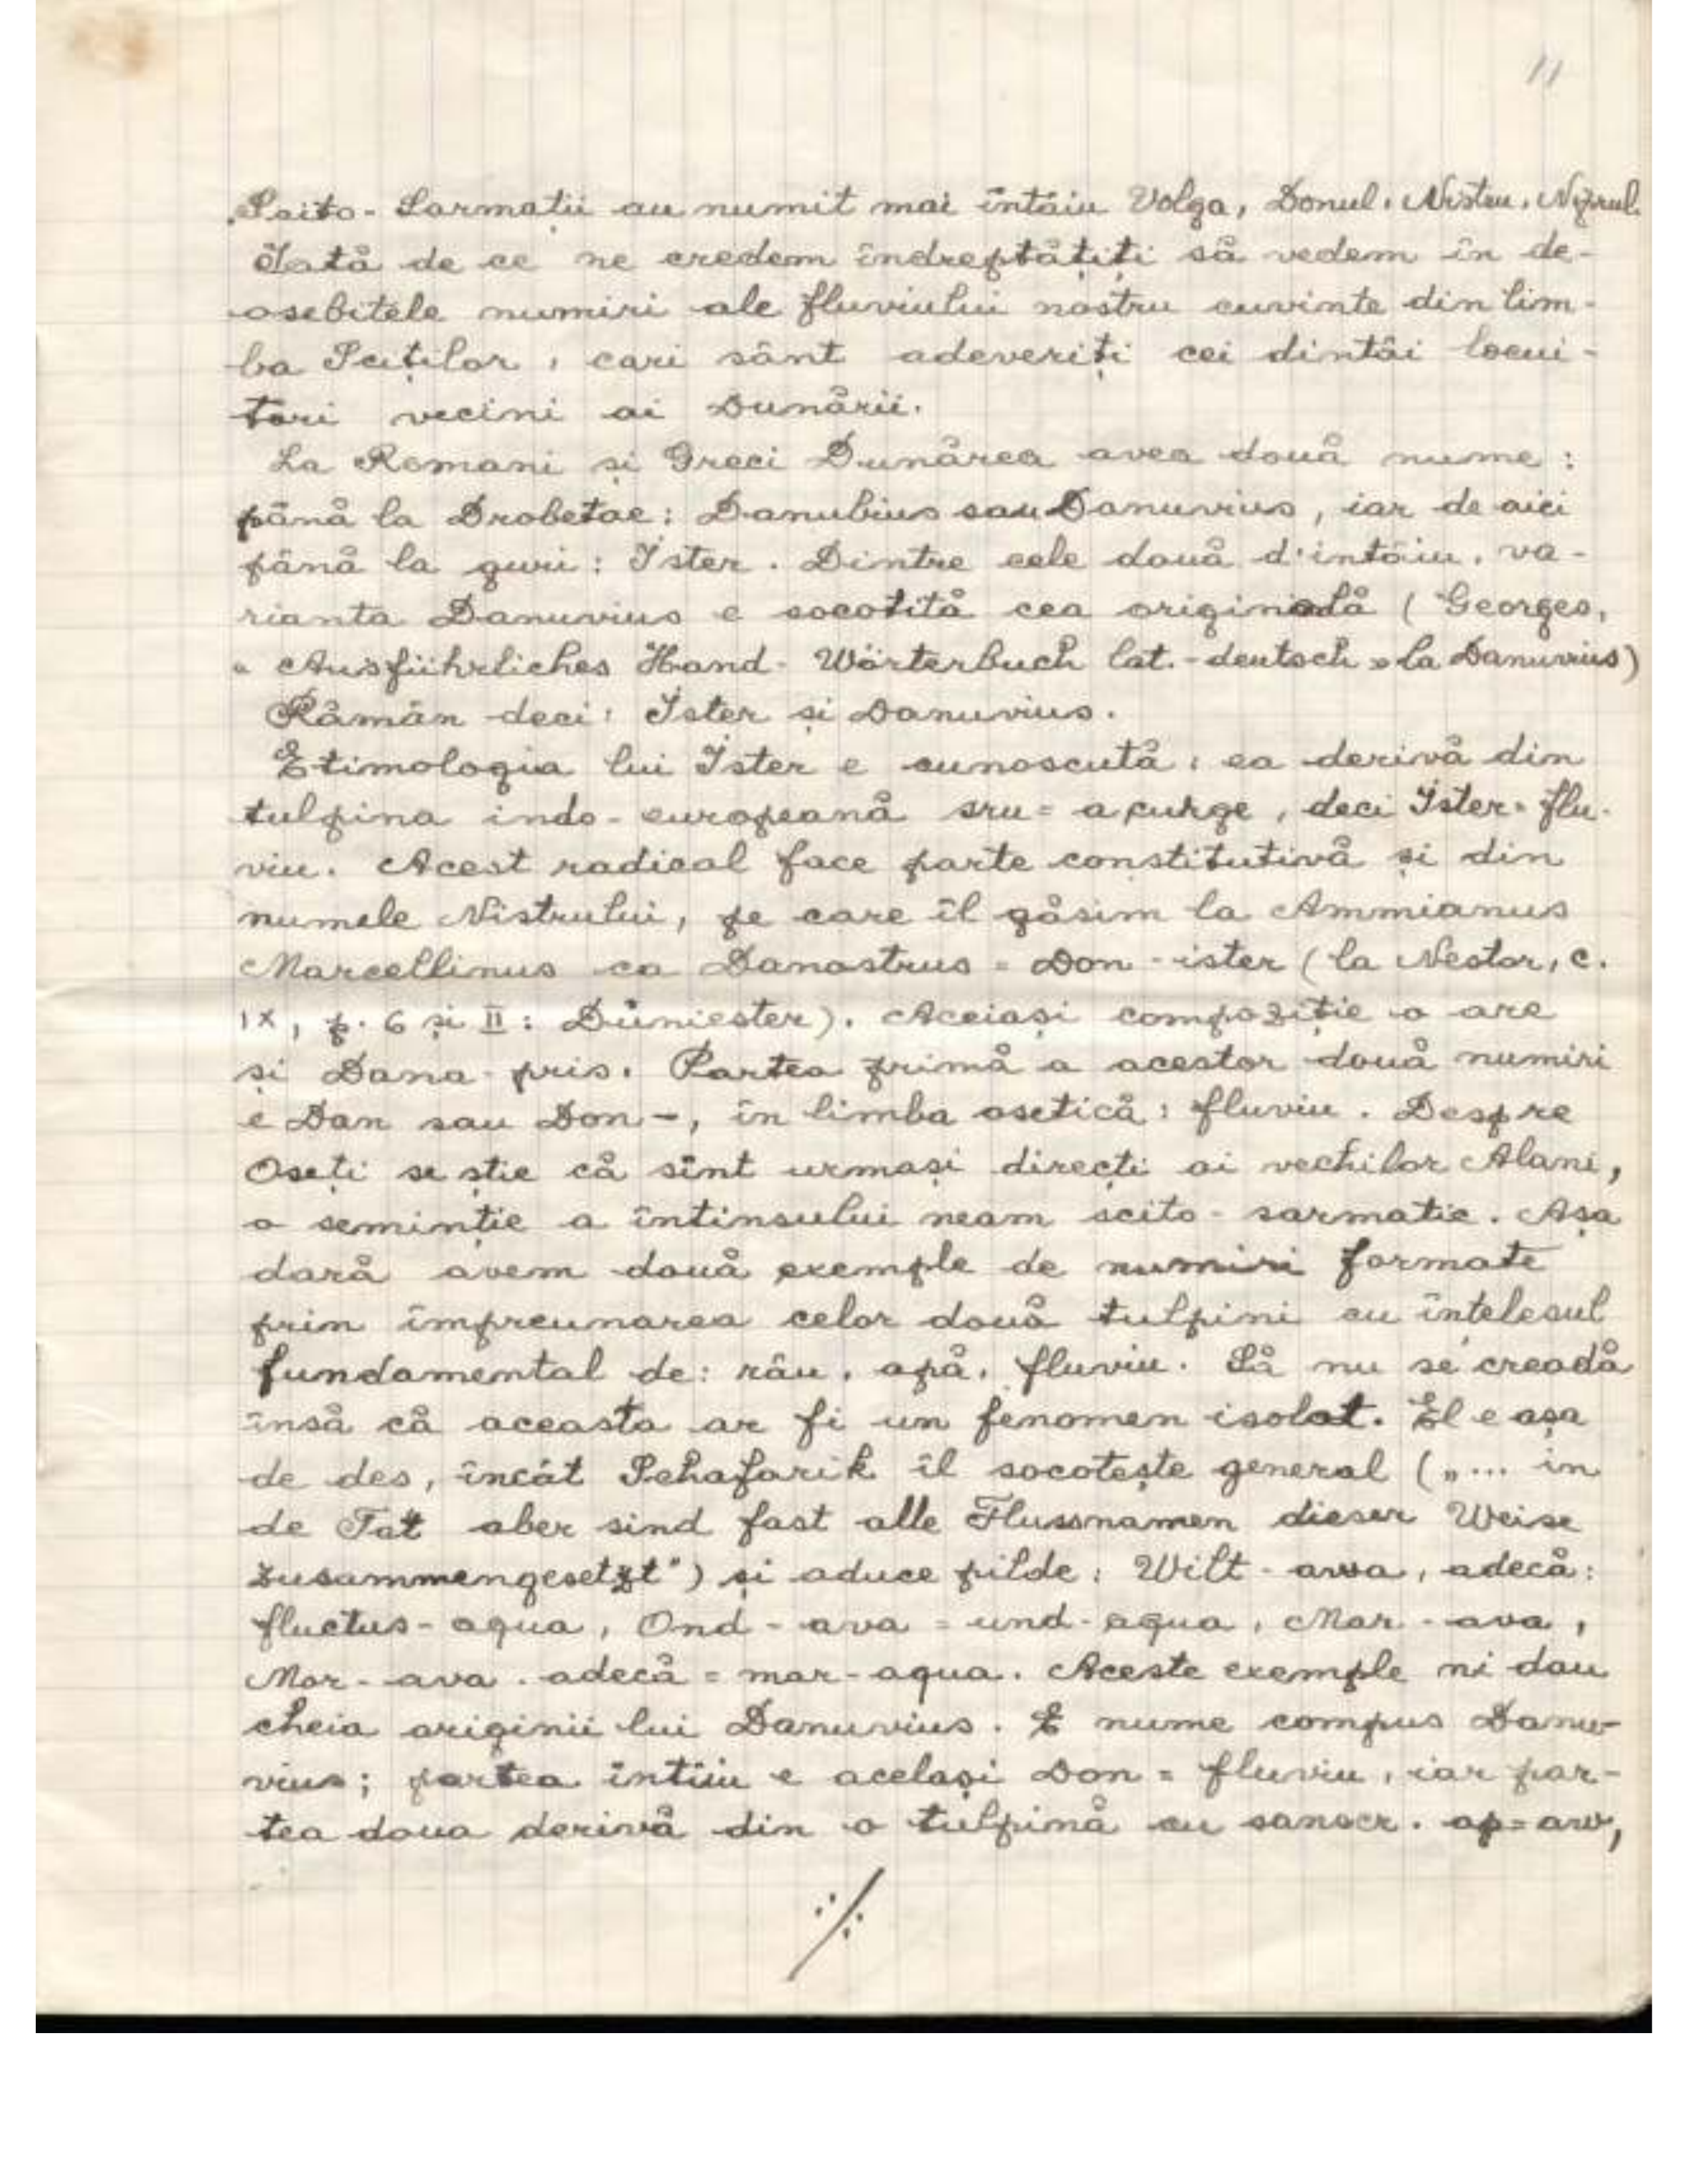 11
Scito-Sarmații au numit mai întăiu Volga, Donul, Nistru, Niprul.
Iată de ce ne credem îndreptățiți să vedem în de-
osebitele numiri ale fluviului nostru cuvinte din lim-
ba Sciților, cari sânt adeveriți cei dintâi locui-
tori vecini ai Dunării.
La Romani și Greci Dunărea avea două nume:
până la Drobetae: Danubius sau Danuvius, iar de aici
până la guri: Ister. Dintre cele două d'intăiu, va-
rianta Danuvius e socotită cea originală (Georges,
„Ausführliches Hand-Wörterbuch lat.-deutsch" la Danuvius)
Rămân deci: Ister și Danuvius.
Etimologia lui Ister e cunoscută: ea derivă din
tulpina indo-europeană sru = a curge, deci Ister = flu-
viu. Acest radical face parte constitutivă și din
numele Nistrului, pe care îl găsim la Ammianus
Marcellinus ca Danastrus = Don-ister (la Nestor, c.
IX, p. 6 și II: Dŭniester). Aceiași compoziție o are
și Dana-pris. Partea primă a acestor două numiri
e Dan sau Don-, în limba osetică: fluviu. Despre
Oseți se știe că sînt urmași direcți ai vechilor Alani,
o seminție a întinsului neam scito-sarmatic. Așa
dară avem două exemple de numiri formate
prin împreunarea celor două tulpini cu înțelesul
fundamental de: râu, apă, fluviu. Să nu se creadă
însă că aceasta ar fi un fenomen isolat. El e așa
de des, încât Schafarik îl socotește general („... in
de Tat aber sind fast alle Flussnamen dieser Weise
zusammengesetzt") și aduce pilde: Wilt-awa, adecă:
fluctus-aqua, Ond-ava = und-aqua, Mar-ava,
Mor-ava. adecă = mar-aqua. Aceste exemple ni dau
cheia originii lui Danuvius. E nume compus Danu-
vius; partea întîiu e același Don = fluviu, iar par-
tea doua derivă din o tulpină cu sanscr. ap = aw,
./.